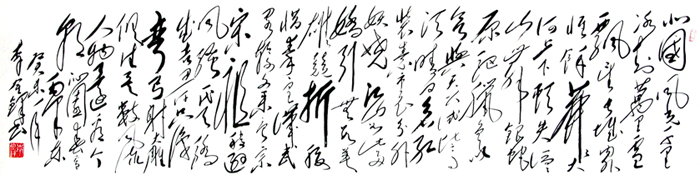 北国风光千里
冰封万里雪
飘望长城内外
惟余莽莽大
河上下顿失滔
滔山舞银蛇
原驰蜡象欲
与天公试比高
须晴日看红
装素裹分外
妖娆江山如此多
娇引无数英
雄竞折腰
惜秦皇汉武
略输文采唐宗
宋祖稍逊
风骚一代天骄
成吉思汗只识
弯弓射大雕
俱往矣数风流
人物还看今
朝
沁园春雪
毛泽东
癸未一月
书